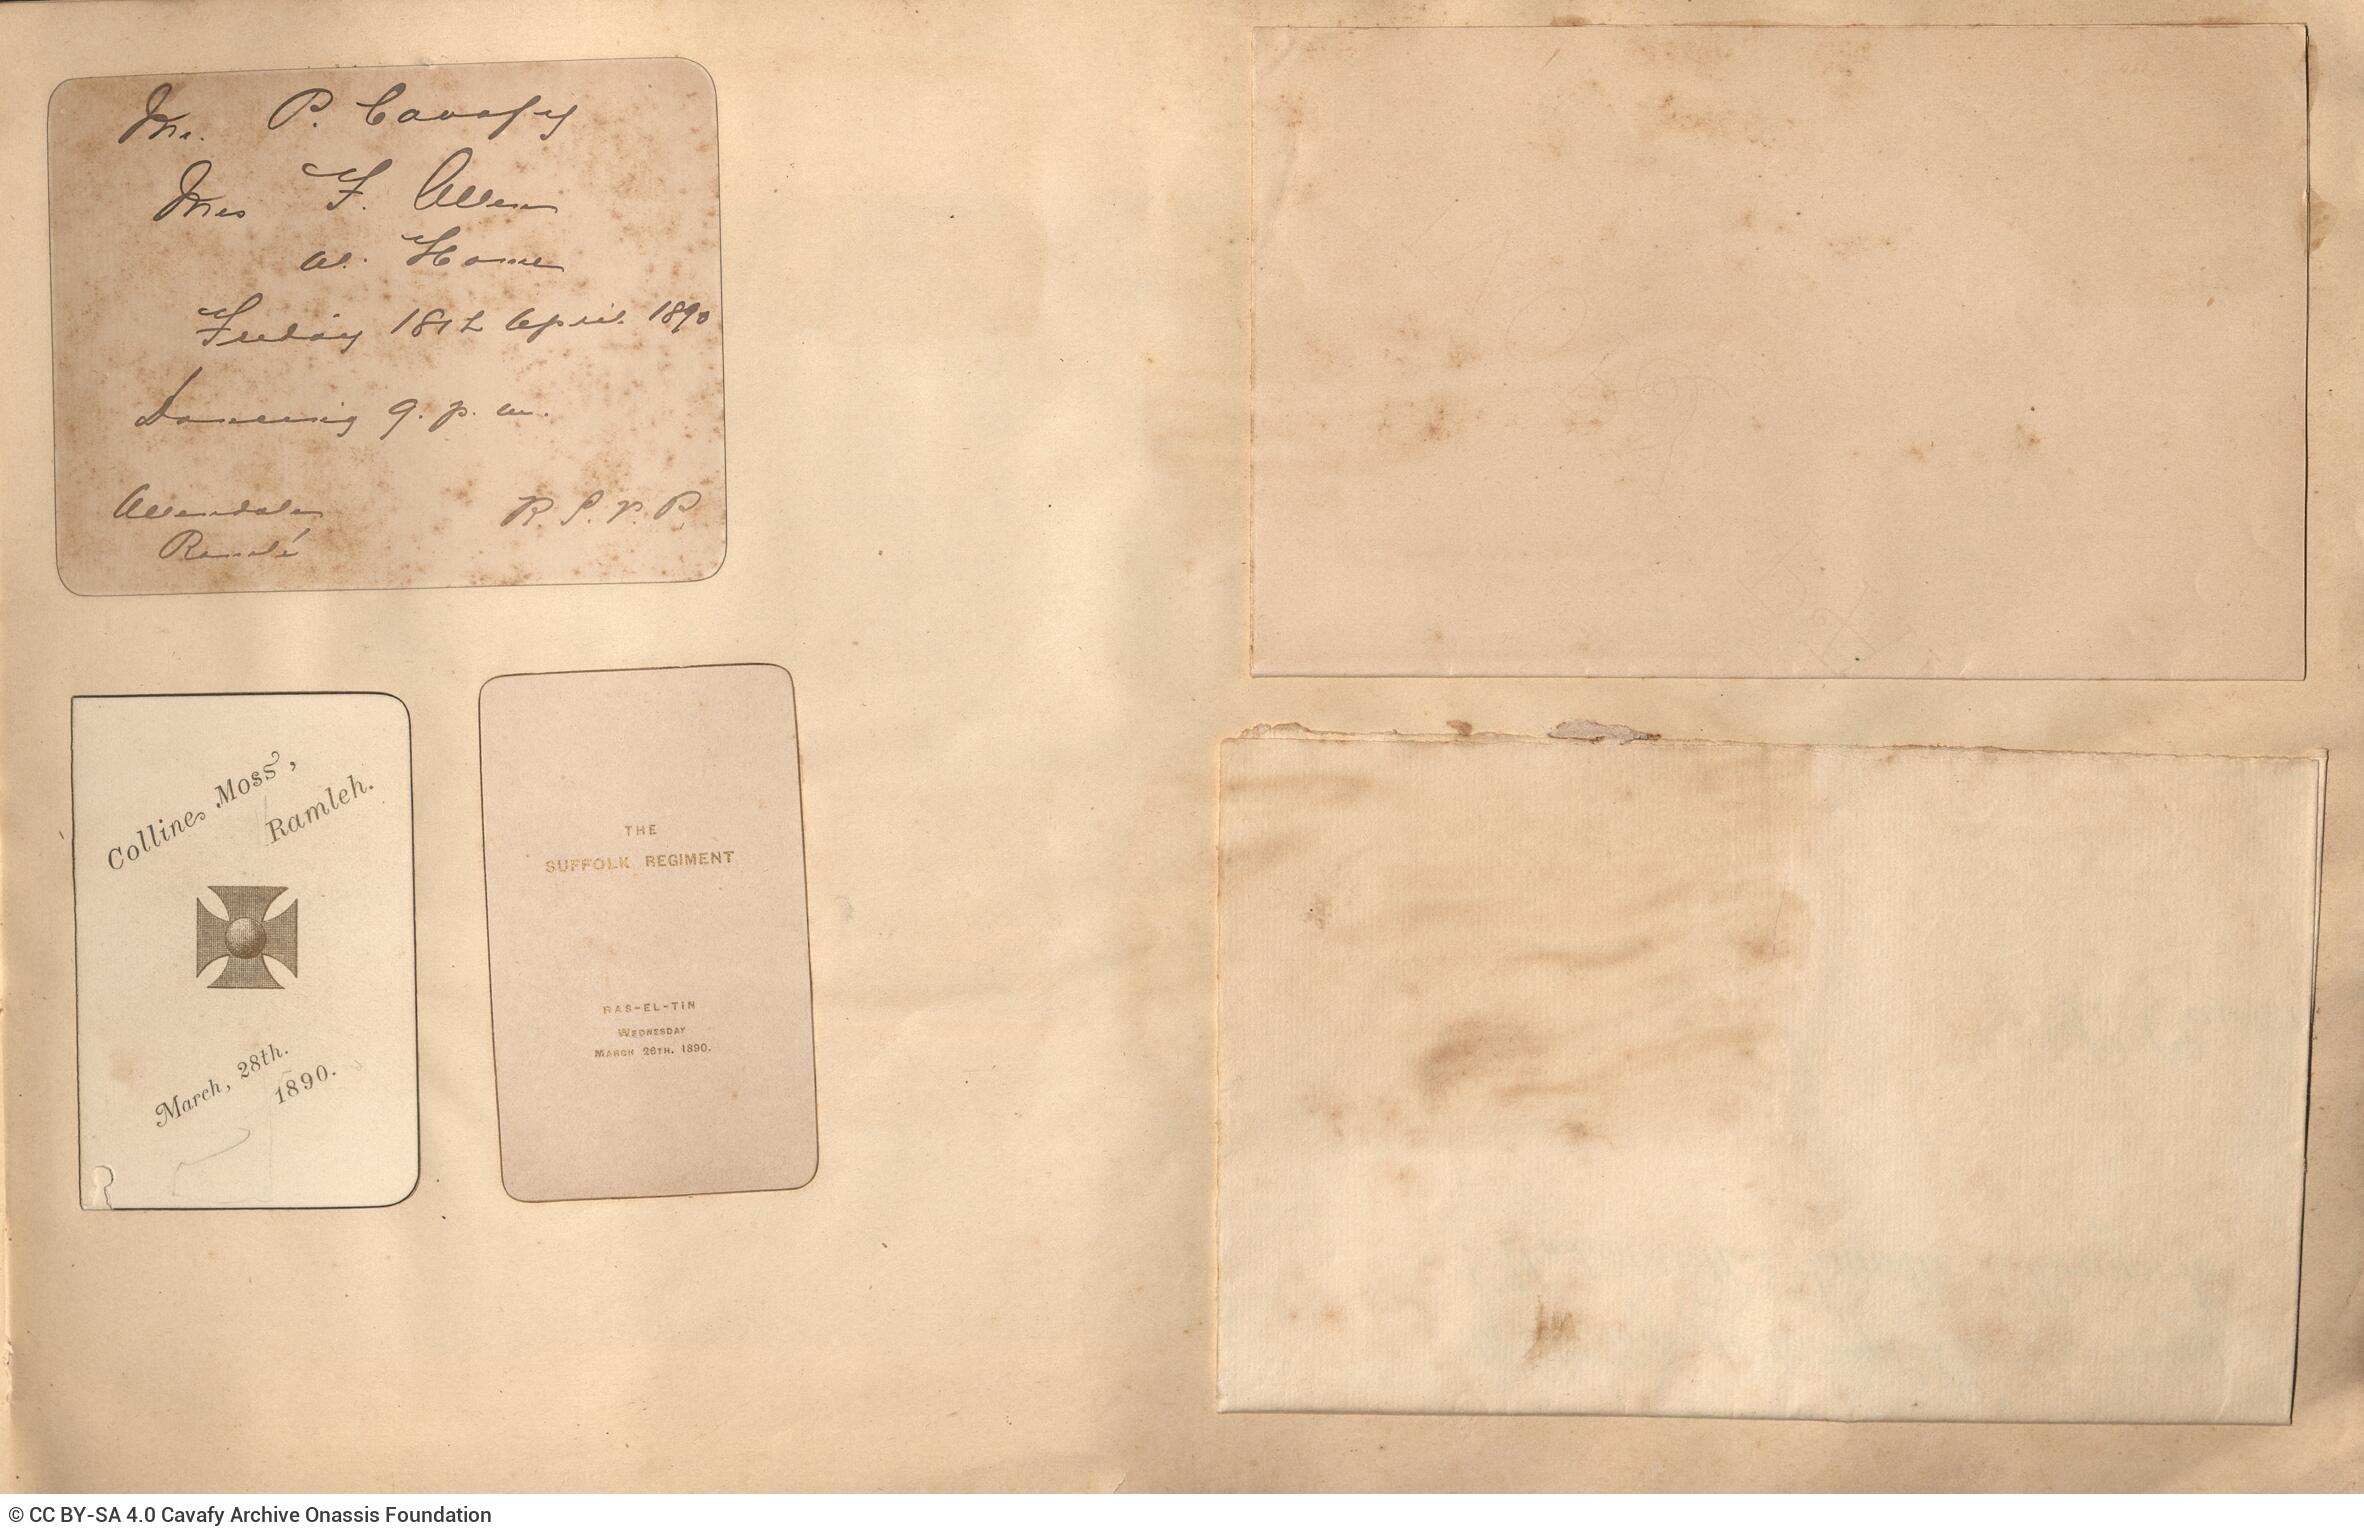 Mr. P. Cavafy
Mrs F. Allen
At Home
Friday 18th April 1890
Dancing 9. p. m.
Allendale
Ramlé
R. S. V. P.
Colline Moss,
Ramleh.
March, 28th.
1890.
THE
SUFFOLK REGIMENT
RAS-EL-TIN
WEDNESDAY
MARCH 26TH. 1890.
© CC BY-SA 4.0 Cavafy Archive Onassis Foundation